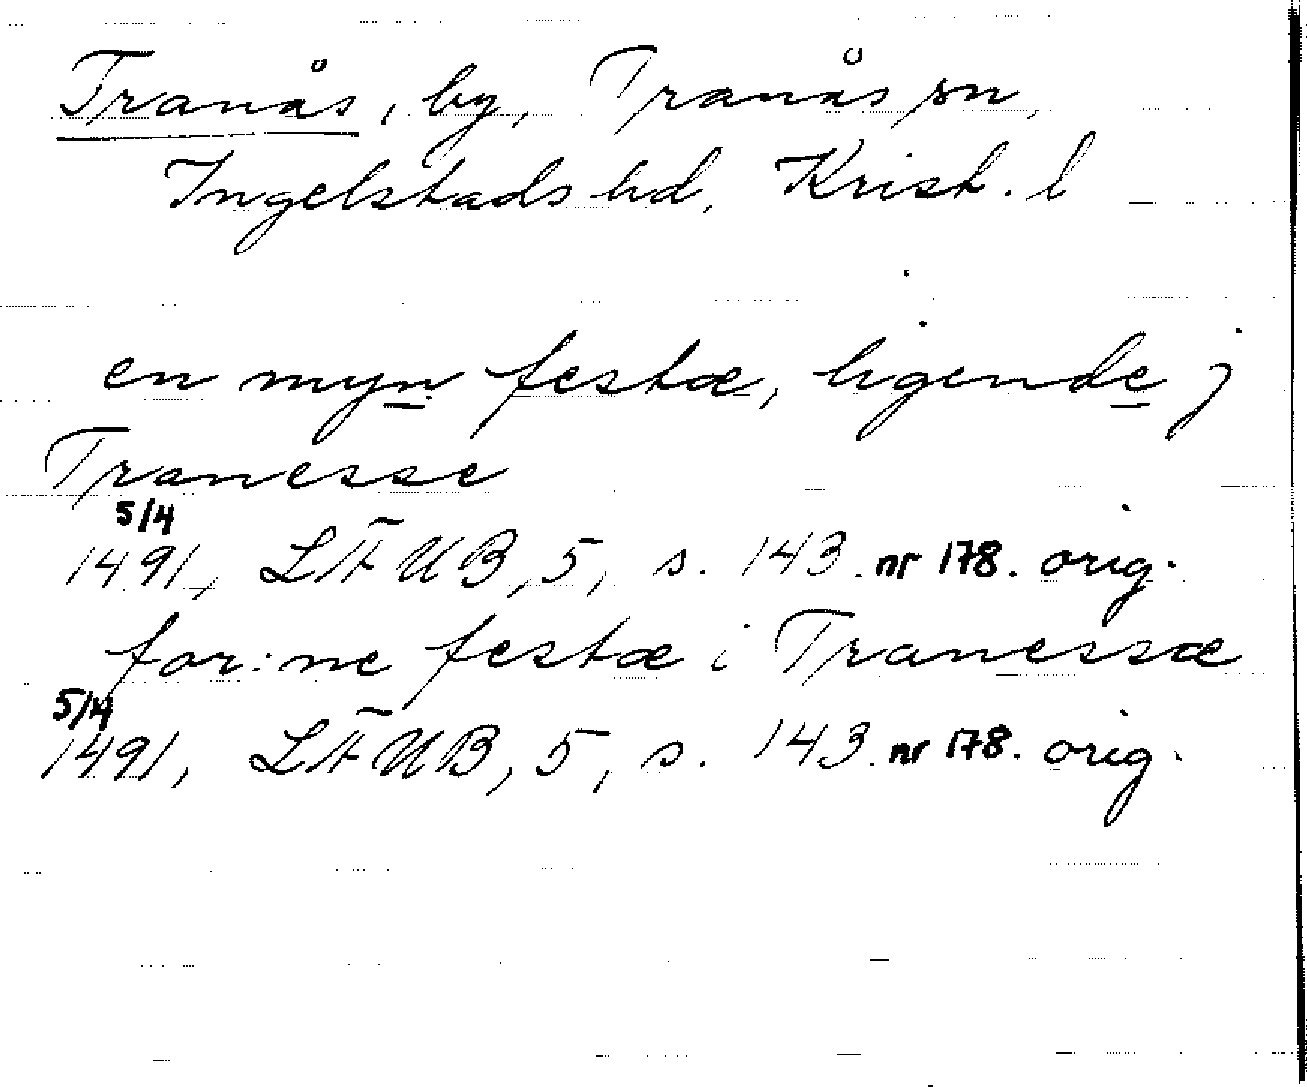 Tranås, by, Tranås sn,
Ingelstads hd, Krist. l
en myn festæ, ligende j
Tranesse
5/4
1491, LÄUB, 5, s. 143. nr 178. orig.
for:ne festæ i Tranessæ
5/4
1491, LÄUB, 5, s. 143. nr 178. orig.